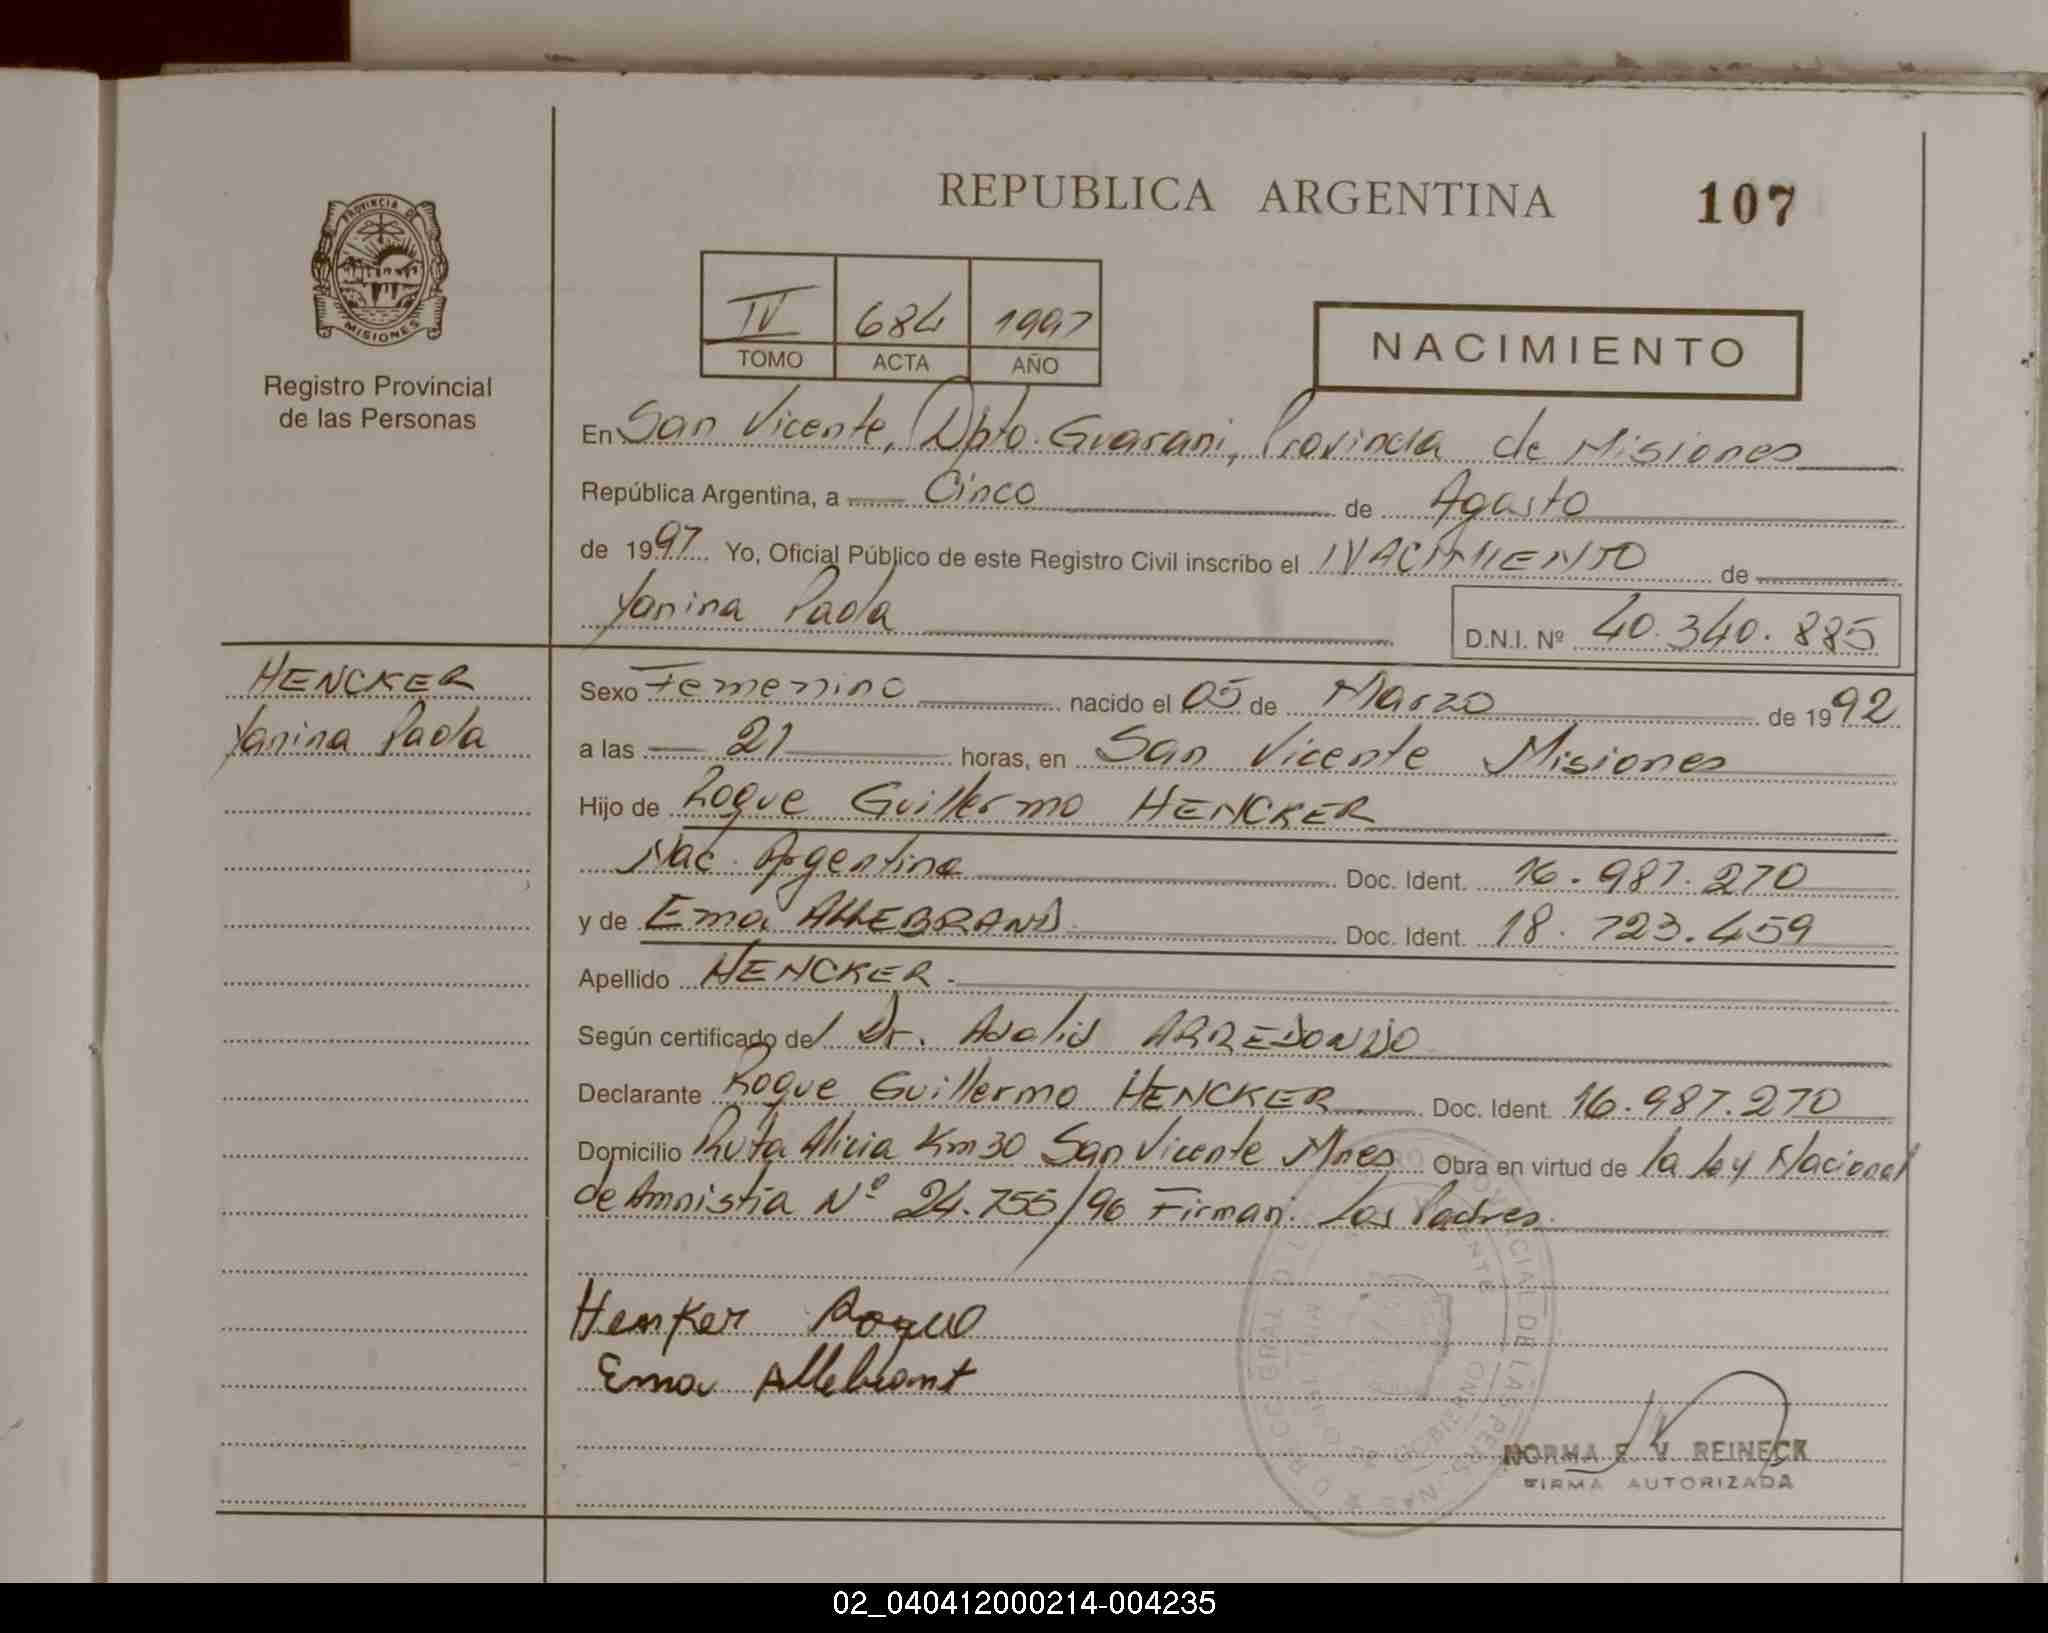 REPUBLICA ARGENTINA 107
PROVINCIA DE
MISIONES
Registro Provincial
de las Personas
IV 684 1997
TOMO ACTA AÑO
NACIMIENTO
En San Vicente, Dpto. Guarani, Provincia de Misiones
República Argentina, a Cinco de Agosto
de 1997 Yo, Oficial Público de este Registro Civil inscribo el NACIMIENTO de
Yanina Paola D.N.I. Nº 40.340.885
HENCKER
Yanina Paola
Sexo Femenino nacido el 05 de Marzo de 1992
a las 21 horas, en San Vicente Misiones
Hijo de Roque Guillermo HENCKER
Nac. Argentina Doc. Ident. 16.987.270
y de Ema ALLEBRAND Doc. Ident. 18.723.459
Apellido HENCKER
Según certificado del Dr. ARREDONDO
Declarante Roque Guillermo HENCKER Doc. Ident. 16.987.270
Domicilio Ruta Alicia Km 30 San Vicente Mnes Obra en virtud de la Ley Nacional
de Amnistía Nº 24.755/96 Firman. Los Padres.
Henker Roque
Ema Allebrant
NORMA E. V. REINECK
FIRMA AUTORIZADA
02_040412000214-004235